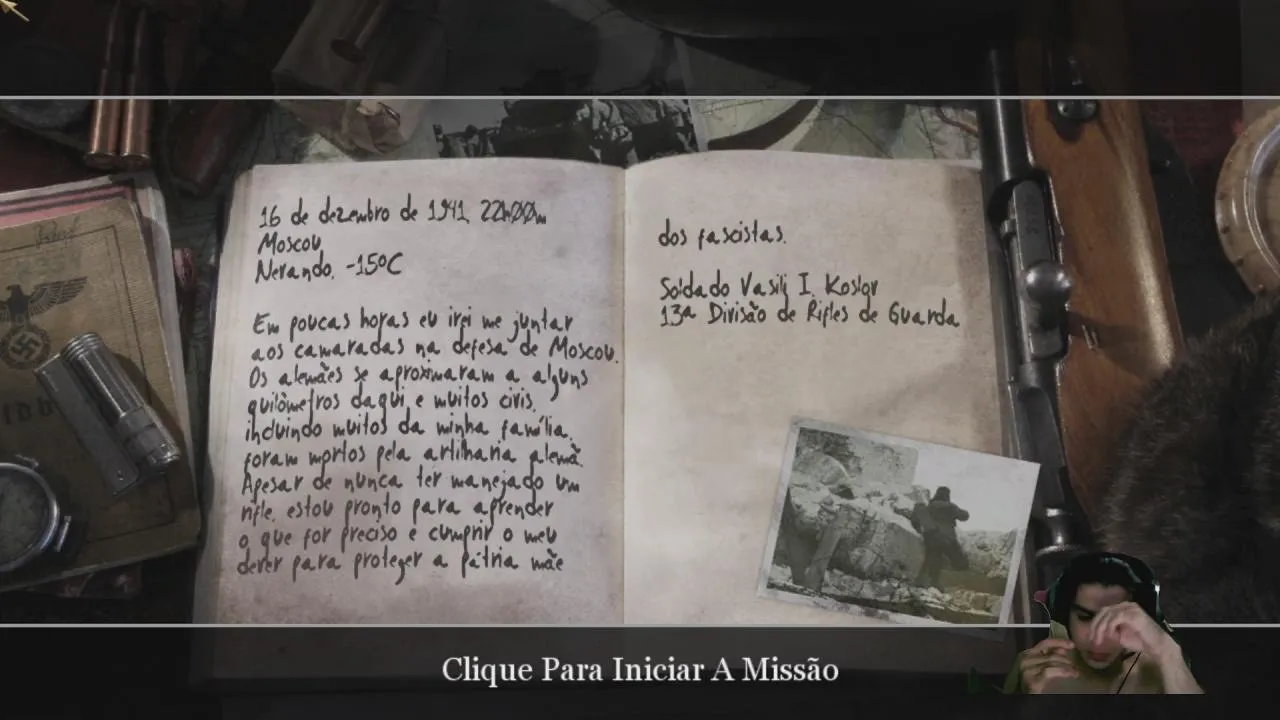 16 de dezembro de 1941, 22h00m
Moscou
Nevando, -15ºC
Em poucas horas eu irei me juntar
aos camaradas na defesa de Moscou.
Os alemães se aproximaram a alguns
quilômetros daqui e muitos civis,
incluindo muitos da minha família,
foram mortos pela artilharia alemã.
Apesar de nunca ter manejado um
rifle, estou pronto para aprender
o que for preciso e cumprir o meu
dever para proteger a pátria mãe
dos fascistas.
Soldado Vasili I. Koslov
13ª Divisão de Rifles de Guarda
Clique Para Iniciar A Missão